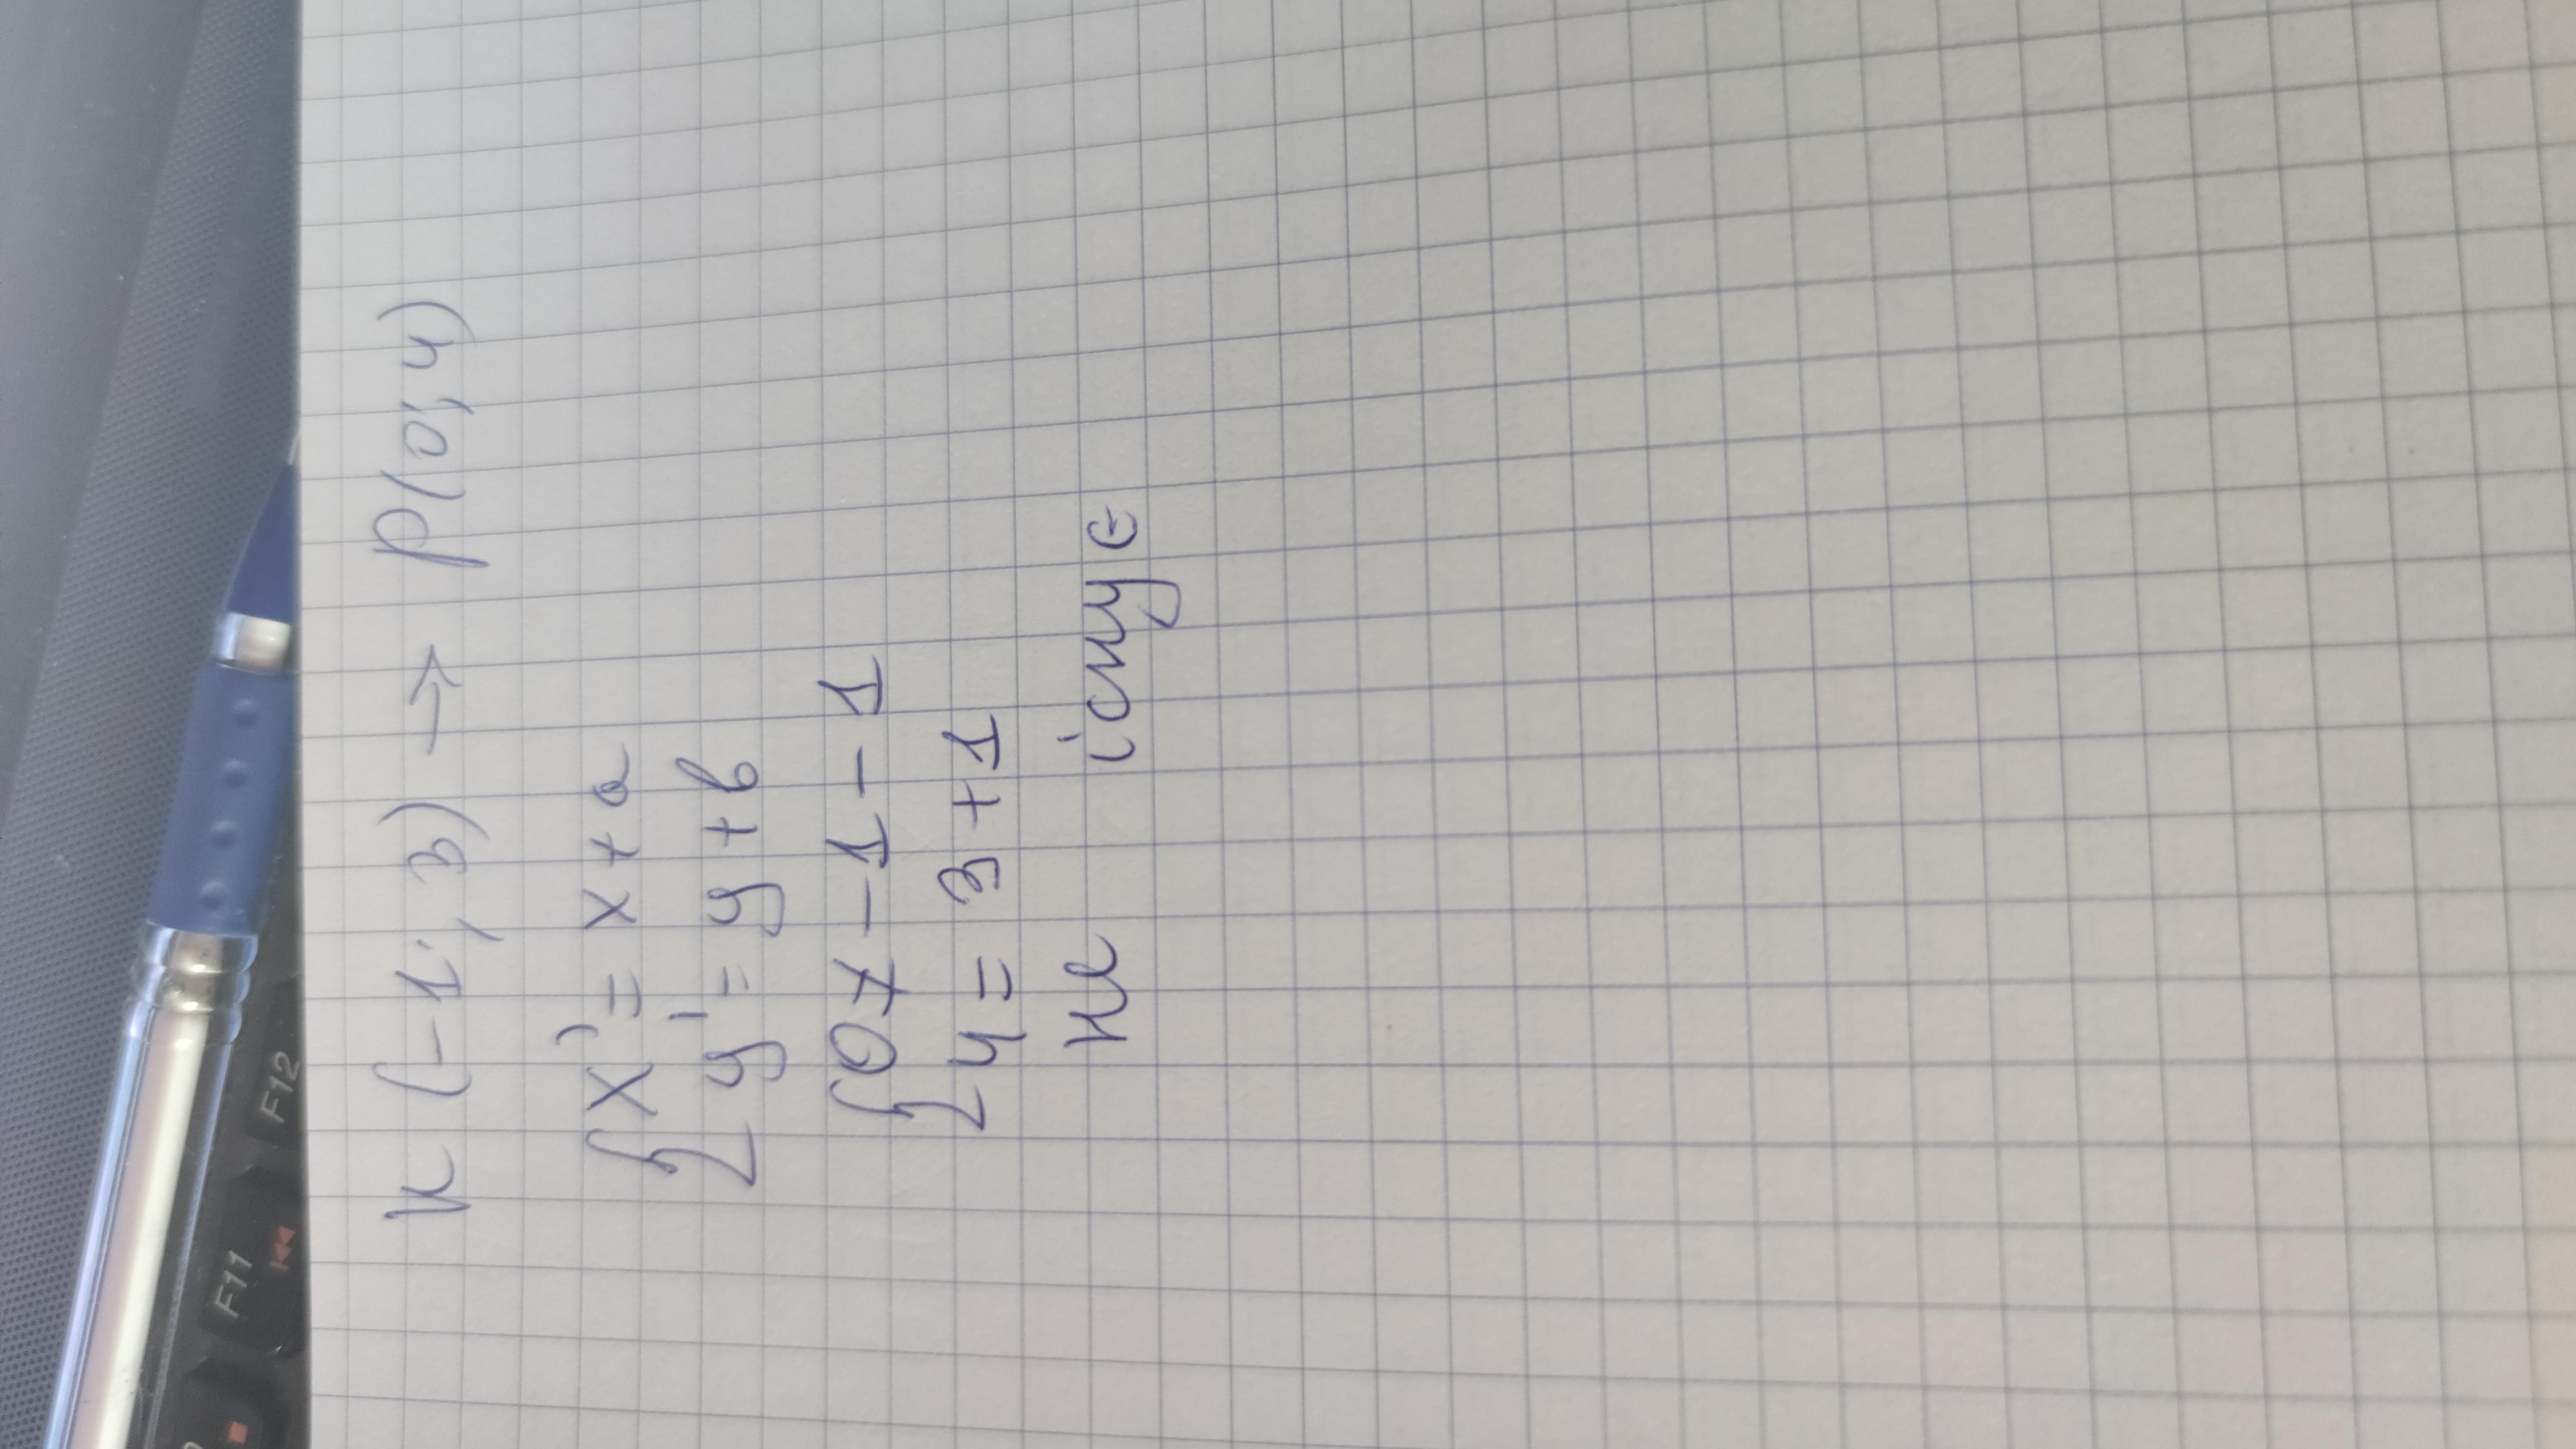 K (-1; 3) → P(0; 4)
{ x' = x + a
y' = y + b
{ 0 ≠ -1 - 1
4 = 3 + 1
не існує
F11
F12